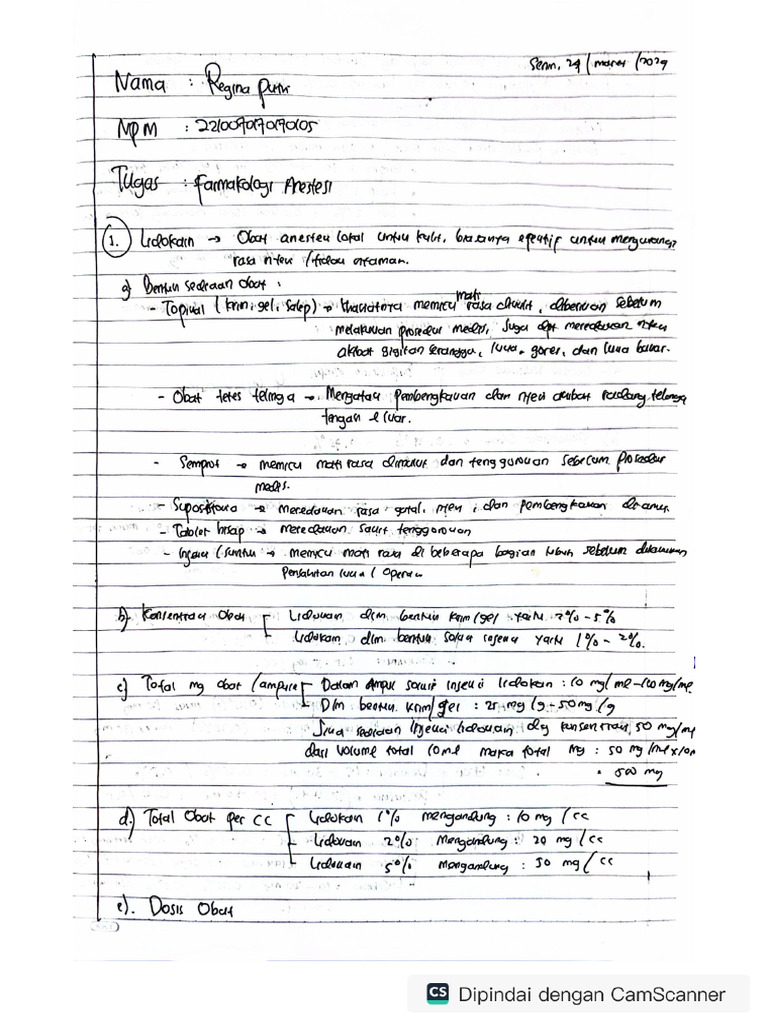 Senin, 24 / maret / 2024
Nama : Regina Putri
NPM : 2210070170105
Tugas : Farmakologi Anestesi
1. Lidokain → Obat anestesi lokal untuk kulit, biasanya efektif untuk mengurangi
rasa nyeri / tidak nyaman.
a) Bentuk sediaan obat :
- Topikal (krim, gel, salep) → memicu mati rasa dikulit, diberikan sebelum
melakukan prosedur medis, Juga dpt meredakan nyeri
akibat gigitan serangga, luka gores, dan luka bakar.
- Obat tetes telinga → Mengatasi pembengkakan dan nyeri akibat radang telinga
tengah & luar.
- Semprot → memicu mati rasa dimulut dan tenggorokan sebelum prosedur
medis.
- Supositoria → Meredakan rasa gatal, nyeri, dan pembengkakan dianus
- Tablet hisap → meredakan sakit tenggorokan
- Injeksi / suntik → memicu mati rasa di beberapa bagian tubuh sebelum dilakukan
Penjahitan luka / operasi
b) Konsentrasi Obat Lidokain dlm bentuk krim/gel yaitu 2% - 5%
Lidokain dlm bentuk injeksi yaitu 1% - 2%.
c) Total mg obat / ampul Dalam Ampul injeksi lidokain : 10 mg/ml -
Dlm bentuk krim/gel : 25 mg/g - 50 mg/g
Jika sediaan injeksi lidokain dg konsentrasi 50 mg/ml
dari volume total 10 ml maka total mg : 50 mg/ml x 10
= 500 mg
d.) Total Obat per CC Lidokain 1% mengandung : 10 mg / cc
Lidokain 2% Mengandung : 20 mg / cc
Lidokain 5% Mengandung : 50 mg / cc
e). Dosis Obat
CS Dipindai dengan CamScanner